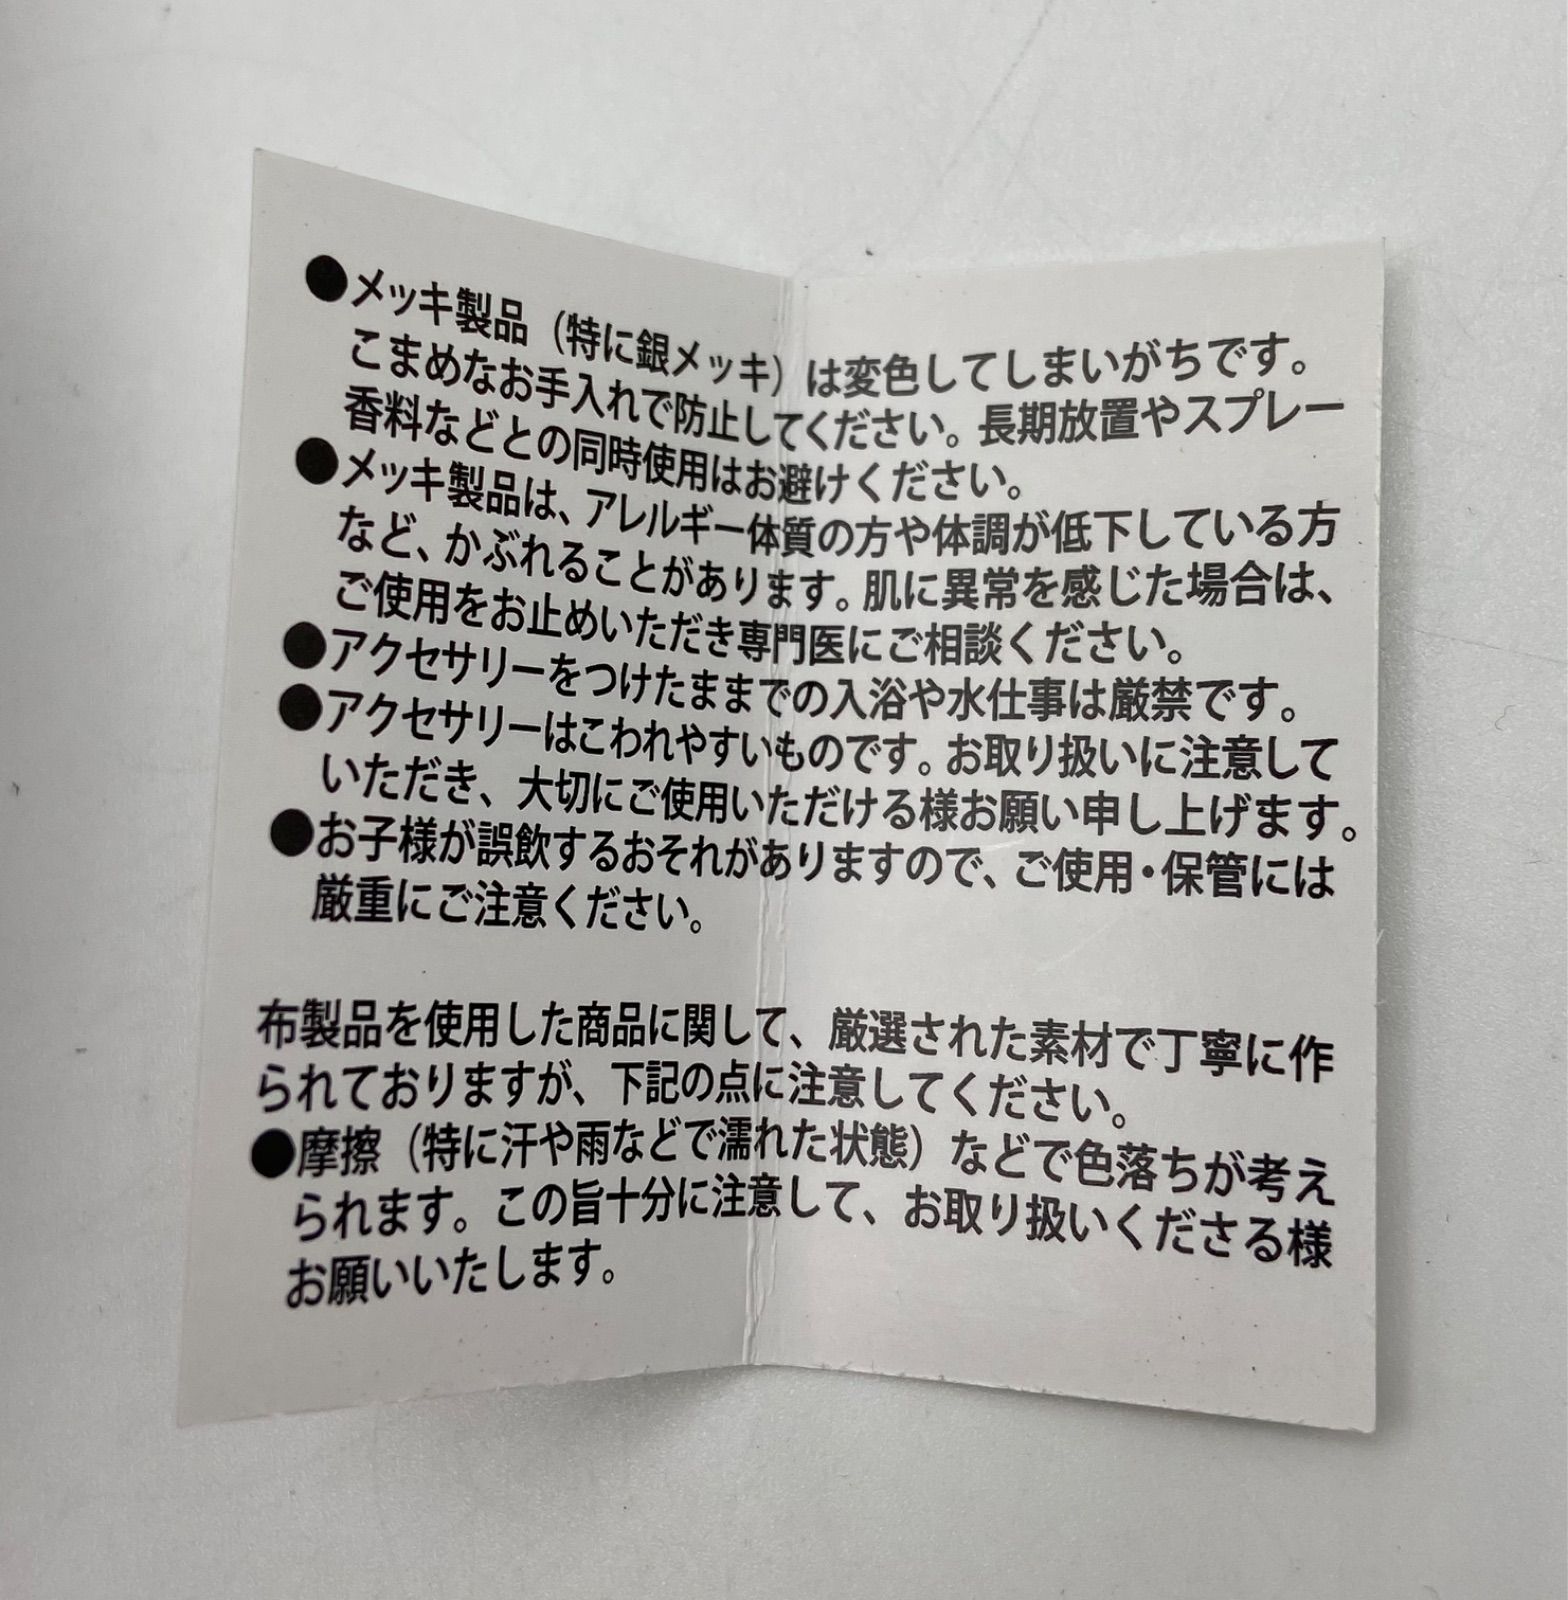 ●メッキ製品（特に銀メッキ）は変色してしまいがちです。
こまめなお手入れで防止してください。長期放置やスプレー
香料などとの同時使用はお避けください。
●メッキ製品は、アレルギー体質の方や体調が低下している方
など、かぶれることがあります。肌に異常を感じた場合は、
ご使用をお止めいただき専門医にご相談ください。
●アクセサリーをつけたままでの入浴や水仕事は厳禁です。
●アクセサリーはこわれやすいものです。お取り扱いに注意して
いただき、大切にご使用いただける様お願い申し上げます。
●お子様が誤飲するおそれがありますので、ご使用・保管には
厳重にご注意ください。
布製品を使用した商品に関して、厳選された素材で丁寧に作
られておりますが、下記の点に注意してください。
●摩擦（特に汗や雨などで濡れた状態）などで色落ちが考え
られます。この旨十分に注意して、お取り扱いくださる様
お願いいたします。